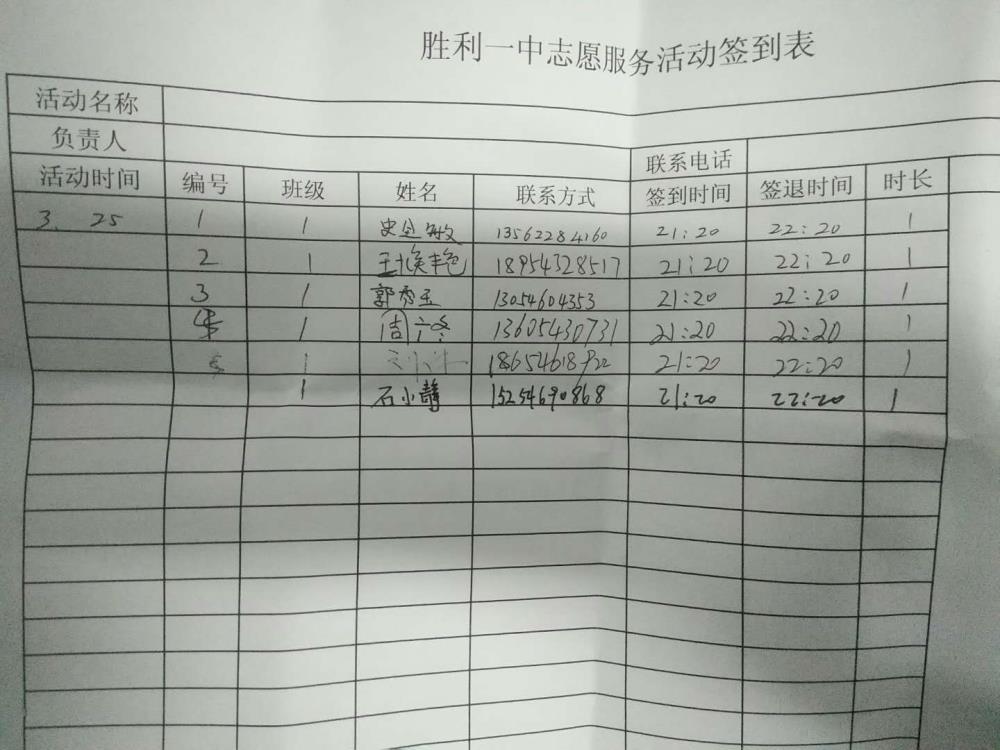 胜利一中志愿服务活动签到表
活动名称
负责人 联系电话
活动时间 编号 班级 姓名 联系方式 签到时间 签退时间 时长
3. 25 1 1 史 敏 13562284160 21:20 22:20 1
2 1 18954328517 21:20 22:20 1
3 1 郭秀玉 13054604353 21:20 22:20 1
1 周 13605430731 21:20 22:20 1
5 1 21:20 22:20 1
1 石小静 15254690868 21:20 22:20 1